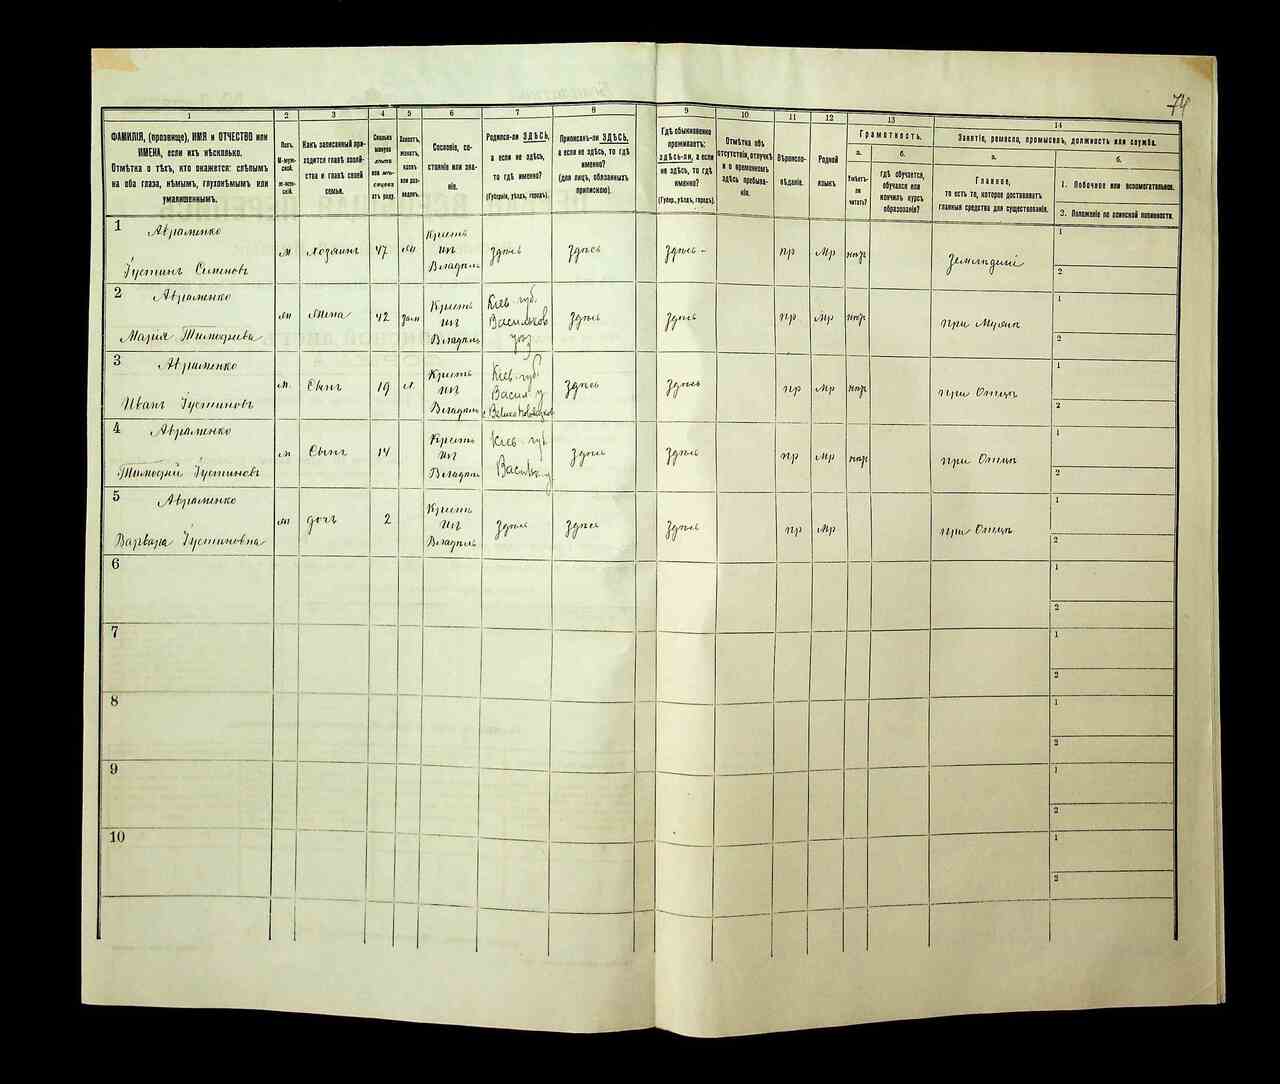 74
1
2
3
4
5
6
7
8
9
10
11
12
13
14
ФАМИЛІЯ, (прозвище), ИМЯ и ОТЧЕСТВО или
ИМЕНА, если ихъ нѣсколько.
Отмѣтка о тѣхъ, кто окажется: слѣпымъ
на оба глаза, нѣмымъ, глухонѣмымъ или
умалишеннымъ.
Полъ.
М-мужской.
Ж-женскій.
Какъ записанный приходится
главѣ хозяйства
и главѣ своей
семьи.
Сколько
минуло
лѣтъ
или мѣсяцевъ
отъ роду.
Холостъ,
женатъ,
вдовъ
или разведенъ.
Сословіе, состояніе
или званіе.
Родился-ли ЗДѢСЬ,
а если не здѣсь,
то гдѣ именно?
(Губернія, уѣздъ, городъ).
Приписанъ-ли ЗДѢСЬ,
а если не здѣсь, то гдѣ
именно?
(для лицъ, обязанныхъ
припискою).
Гдѣ обыкновенно
проживаетъ:
здѣсь-ли, а если
не здѣсь, то гдѣ
именно?
(Губер., уѣздъ, городъ).
Отмѣтка объ
отсутствіи, отлучкѣ
и о временномъ
здѣсь пребываніи.
Вѣроисповѣданіе.
Родной
языкъ
Грамотность.
а.
Умѣетъ-ли
читать?
б.
гдѣ обучается,
обучался или
кончилъ курсъ
образованія?
Занятіе, ремесло, промыселъ, должность или служба.
а.
Главное,
то есть то, которое доставляетъ
главныя средства для существованія.
б.
1. Побочное или вспомогательное.
2. Положеніе по воинской повинности.
1 Авраменко
Густинъ Семеновъ
м Хозяинъ 47 Крестьянинъ Владѣль здѣсь здѣсь здѣсь - пр Мр Земледѣлі
1
2
2 Авраменко
Марія Тимофеева
Жена 42 зам Владѣль Кіев. губ. Васильков уѣз здѣсь здѣсь пр Мр при Мужѣ
1
2
3 Авраменко
Иванъ Густиновъ
м. Сынъ 19 Владѣль Кіев. губ. Васил у здѣсь здѣсь пр Мр при Отцѣ
1
2
4 Авраменко
Тимофей Густиновъ
м Сынъ 14 Владѣль Кіев. губ здѣсь здѣсь пр Мр при Отцѣ
1
2
5 Авраменко
Варвара Густиновна
дочь 2 Владѣль здѣсь здѣсь здѣсь пр Мр при Отцѣ
1
2
6
1
2
7
1
2
8
1
2
9
1
2
10
1
2